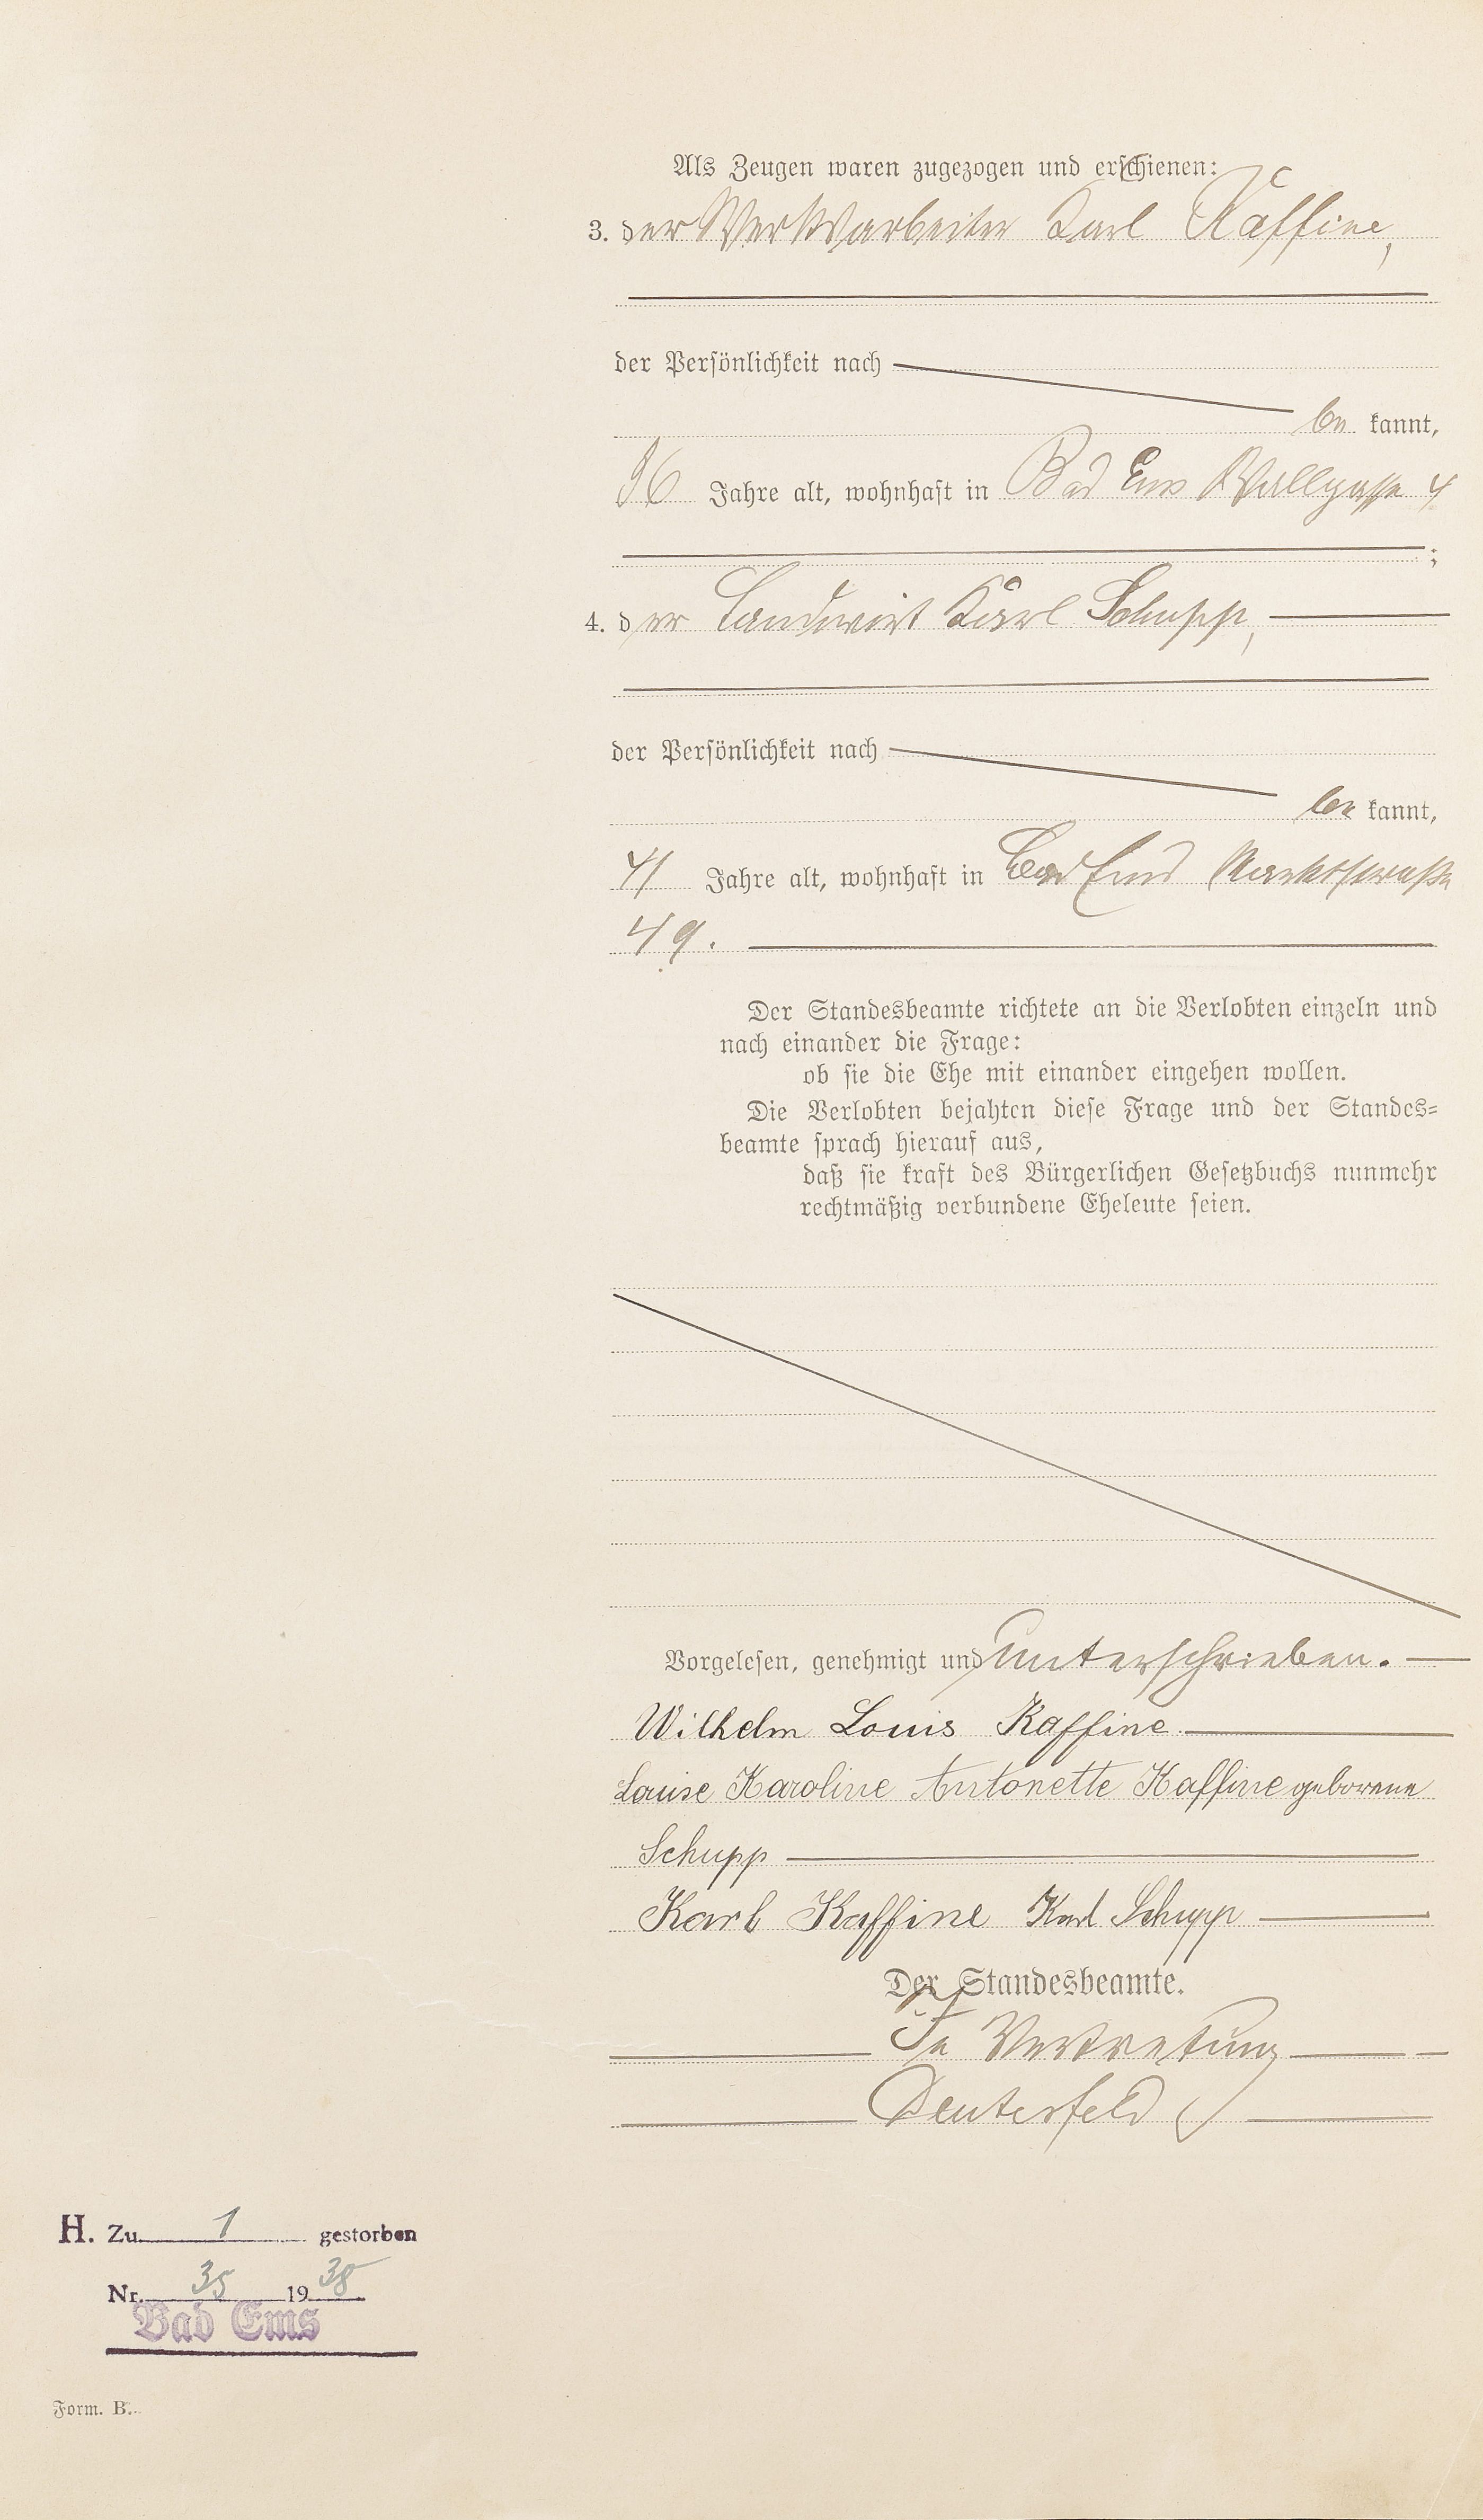 Als Zeugen waren zugezogen und erschienen:
3. der Werkarbeiter Karl Kaffine,
der Persönlichkeit nach
be kannt,
36 Jahre alt, wohnhaft in Bad Ems Wallgasse 4
;
4. der Landwirt Karl Schupp,
der Persönlichkeit nach
be kannt,
41 Jahre alt, wohnhaft in Bad Ems Marktstraße
49.
Der Standesbeamte richtete an die Verlobten einzeln und
nach einander die Frage:
ob sie die Ehe mit einander eingehen wollen.
Die Verlobten bejahten diese Frage und der Standes-
beamte sprach hierauf aus,
daß sie kraft des Bürgerlichen Gesetzbuchs nunmehr
rechtmäßig verbundene Eheleute seien.
Vorgelesen, genehmigt und unterschrieben.
Wilhelm Louis Kaffine.
Louise Karoline Antonette Kaffine geborene
Schupp
Karl Kaffine Karl Schupp
Der Standesbeamte.
In Vertretung
H. Zu 1 gestorben
Nr. 35 1938
Bad Ems
Form. B.